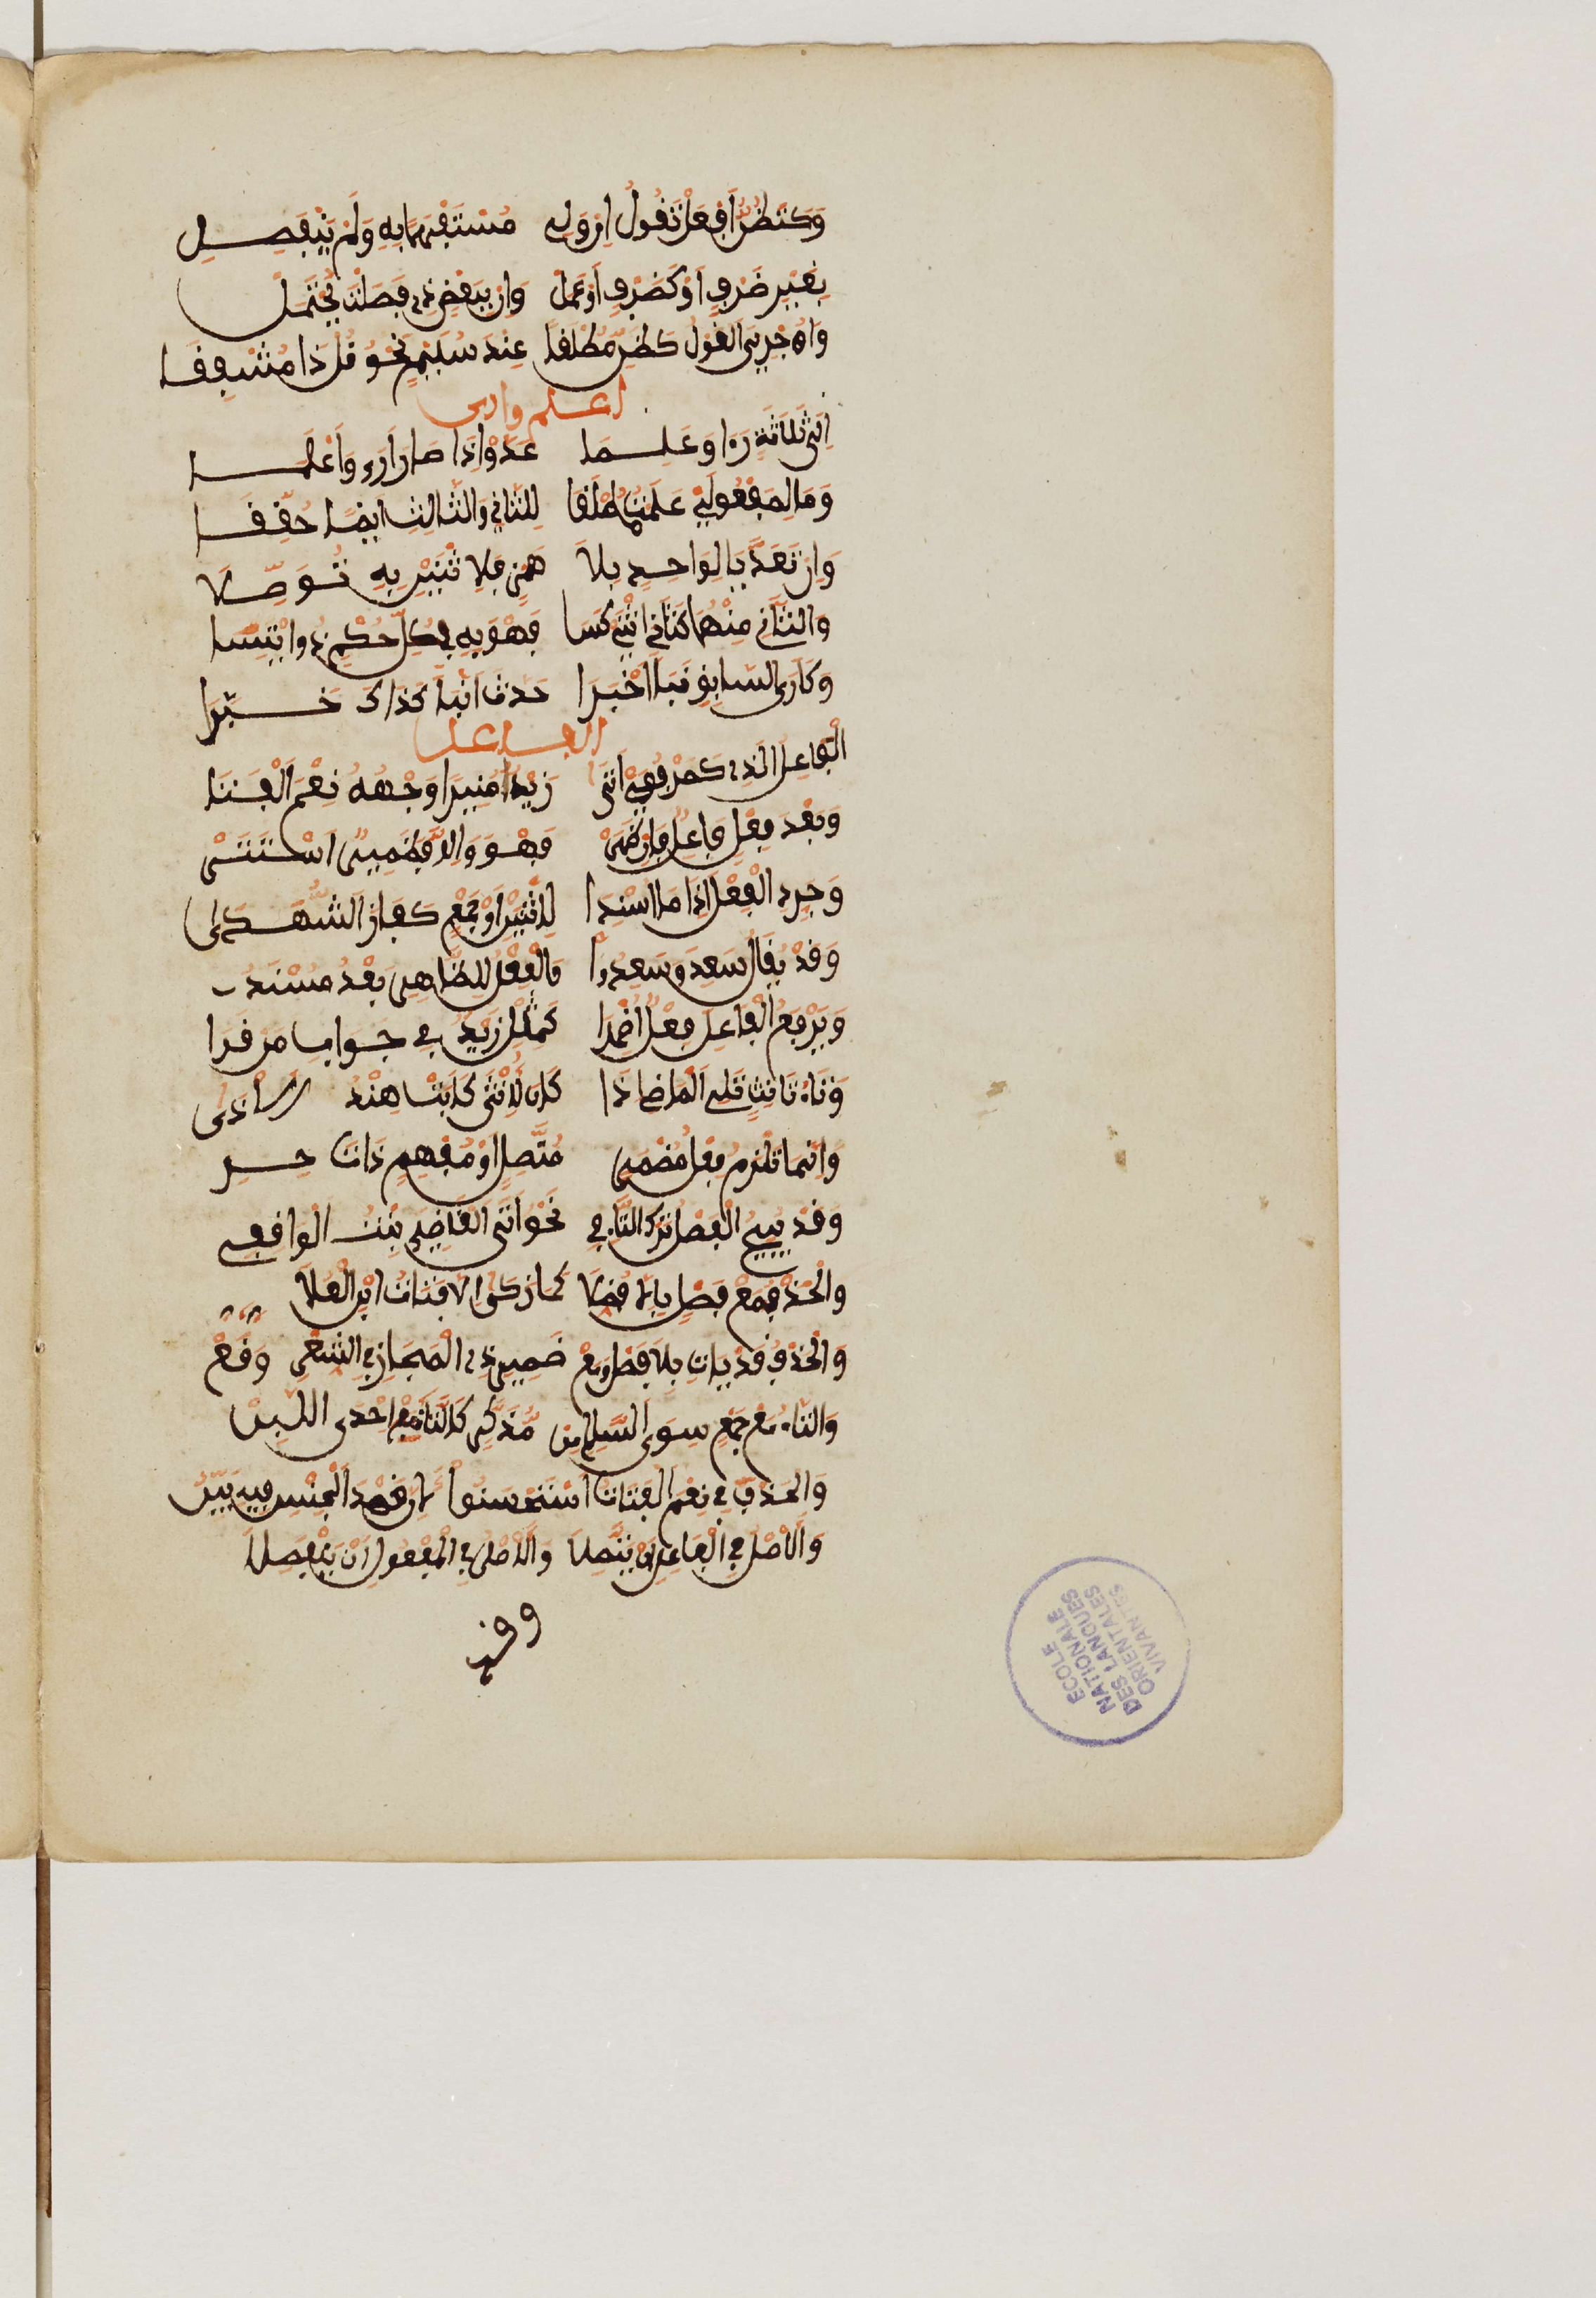 وَكَتَظُنُّ اَفِعَلْ تَقُولُ اِن وَلِي مُسْتَفْهَمًا بِهِ وَلَمْ يَنْفَصِلِ
بِغَيْرِ ضَرْفٍ اَوْ كَضَرْفٍ اَوْ عَمَلْ وَاِنْ بِبَعْضِ ذِي فَصَلْتَ يُحْتَمَلْ
وَاُجْرِيَ الْقَوْلُ كَظَنٍّ مُطْلَقَا عِنْدَ سُلَيْمٍ نَحْوُ قُلْ ذَا مُشْفِقَا
اعلم وارى
اِلَى ثَلَاثَةٍ رَءَا وَعَلِمَا عَدَّوْا اِذَا صَارَ اَرَى وَاَعْلَمَا
وَمَا لِمَفْعُولَيْ عَلِمْتُ مُطْلَقَا لِلثَّانِي وَالثَّالِثِ اَيْضًا حُقِّقَا
وَاِنْ تَعَدَّيَا لِوَاحِدٍ بِلَا هَمْزٍ فَلِاثْنَيْنِ بِهِ تُوَصَّلَا
وَالثَّانِي مِنْهُمَا كَثَانِي اثْنَيْ كَسَا فَهْوَ بِهِ فِي كُلِّ حُكْمٍ ذُو ائْتِسَا
وَكَاَرَى السَّابِقِ نَبَّاَ اَخْبَرَا حَدَّثَ اَنْبَاَ كَذَاكَ خَبَّرَا
الفاعل
الْفَاعِلُ الَّذِي كَمَرْفُوعَيْ اَتَى زَيْدٌ مُنِيرًا وَجْهُهُ نِعْمَ الْفَتَى
وَبَعْدَ فِعْلٍ فَاعِلٌ فَاِنْ ظَهَرْ فَهْوَ وَاِلَّا فَضَمِيرٌ اسْتَتَرْ
وَجَرِّدِ الْفِعْلَ اِذَا مَا اُسْنِدَا لِاثْنَيْنِ اَوْ جَمْعٍ كَفَازَ الشُّهَدَا
وَقَدْ يُقَالُ سَعِدَا وَسَعِدُوا وَالْفِعْلُ لِلظَّاهِرِ بَعْدُ مُسْنَدُ
وَيَرْفَعُ الْفَاعِلَ فِعْلٌ اُضْمِرَا كَمِثْلِ زَيْدٌ فِي جَوَابِ مَنْ قَرَا
وَتَاءُ تَانِيثٍ تَلِي الْمَاضِي اِذَا كَانَ لِاُنْثَى كَاَبَتْ هِنْدُ الْاَذَى
وَاِنَّمَا تَلْزَمُ فِعْلَ مُضْمَرِ مُتَّصِلٍ اَوْ مُفْهِمٍ ذَاتَ حِرِ
وَقَدْ يُبِيحُ الْفَصْلُ تَرْكَ التَّاءِ فِي نَحْوِ اَتَى الْقَاضِيَ بِنْتُ الْوَاقِفِ
وَالْحَذْفُ مَعْ فَصْلٍ بِاِلَّا فُضِّلَا كَمَا زَكَى اِلَّا فَتَاتُ ابْنِ الْعَلَا
وَالْحَذْفُ قَدْ يَاتِي بِلَا فَصْلٍ وَمَعْ ضَمِيرِ ذِي الْمَجَازِ فِي الشِّعْرِ وَقَعْ
وَالتَّاءُ مَعْ جَمْعٍ سِوَى السَّالِمِ مِنْ مُذَكَّرٍ كَالتَّاءِ مَعْ اِحْدَى اللَّبِنْ
وَالْحَذْفَ فِي نِعْمَ الْفَتَاتُ اسْتَحْسَنُوا لِاَنَّ قَصْدَ الْجِنْسِ فِيهِ بَيِّنُ
وَالْاَصْلُ فِي الْفَاعِلِ اَنْ يَتَّصِلَا وَالْاَصْلُ فِي الْمَفْعُولِ اَنْ يَنْفَصِلَا
وقد
ECOLE NATIONALE DES LANGUES ORIENTALES VIVANTES